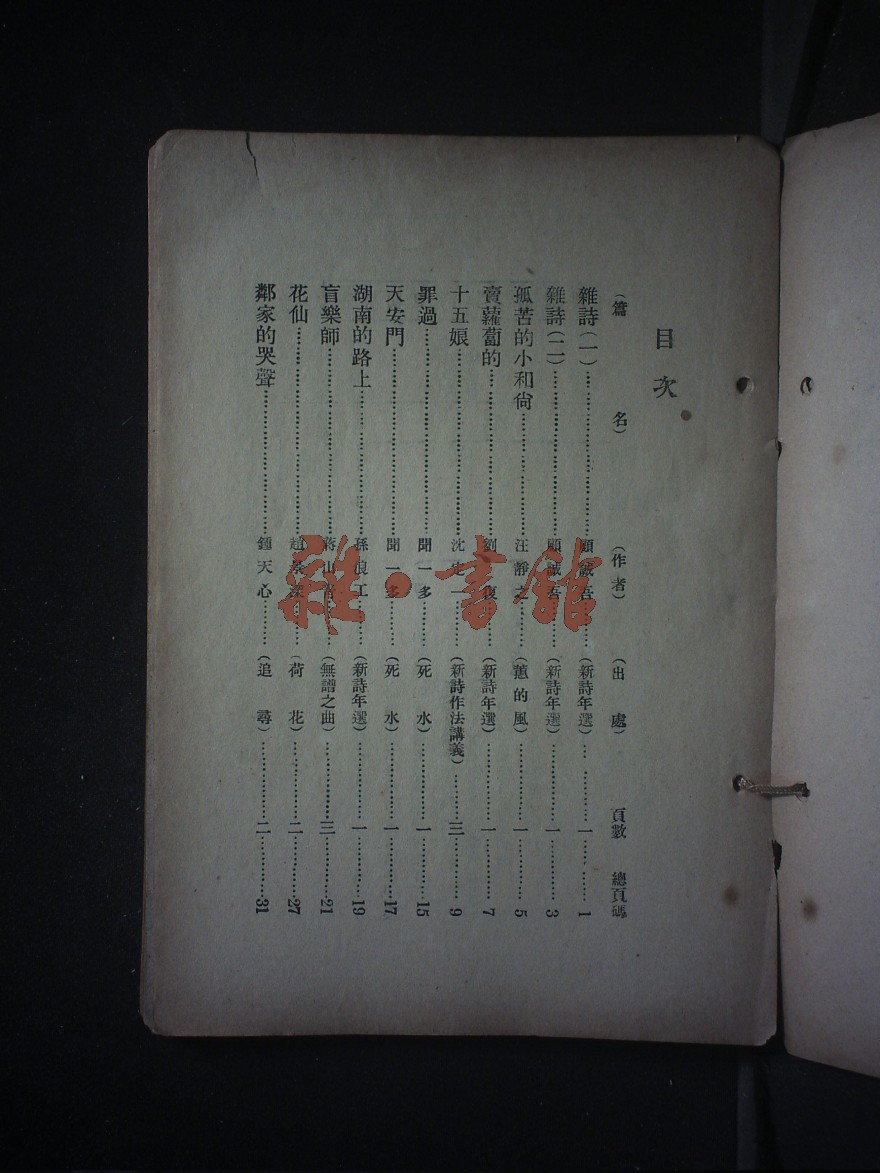 目次
(篇名) (作者) (出處) 頁數 總頁碼
雜詩(一)……顧誠吾……(新詩年選)……一……1
雜詩(二)……顧誠吾……(新詩年選)……一……3
孤苦的小和尙……汪靜之……(蕙的風)……一……5
賣蘿蔔的……劉復……(新詩年選)……一……7
十五娘……沈定一……(新詩作法講義)……三……9
罪過……聞一多……(死水)……一……15
天安門……聞一多……(死水)……一……17
湖南的路上……孫俍工……(新詩年選)……一……19
盲樂師……蔣山青……(無譜之曲)……三……21
花仙……趙景深……(荷花)……二……27
鄰家的哭聲……鍾天心……(追尋)……二……31
雜·書館